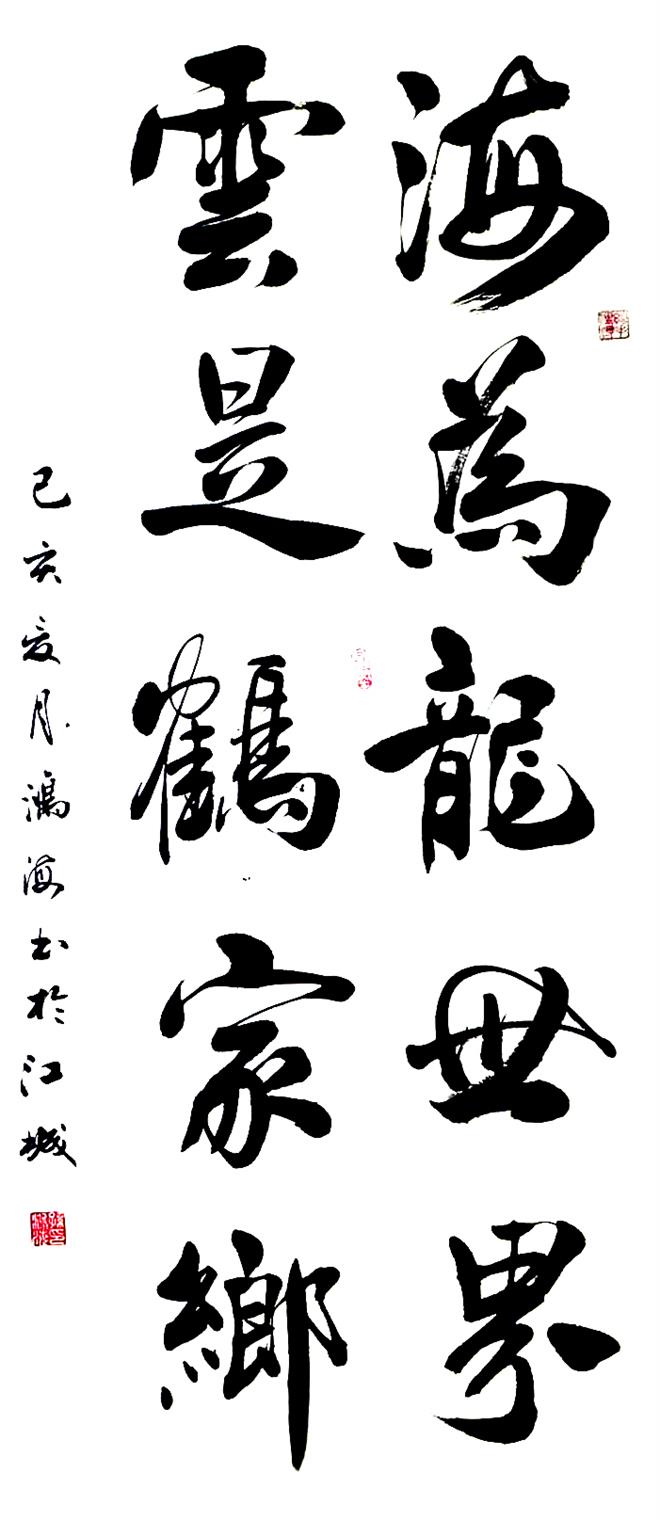 海為龍世界
雲是鶴家鄉
己亥夏月鴻海书於江城